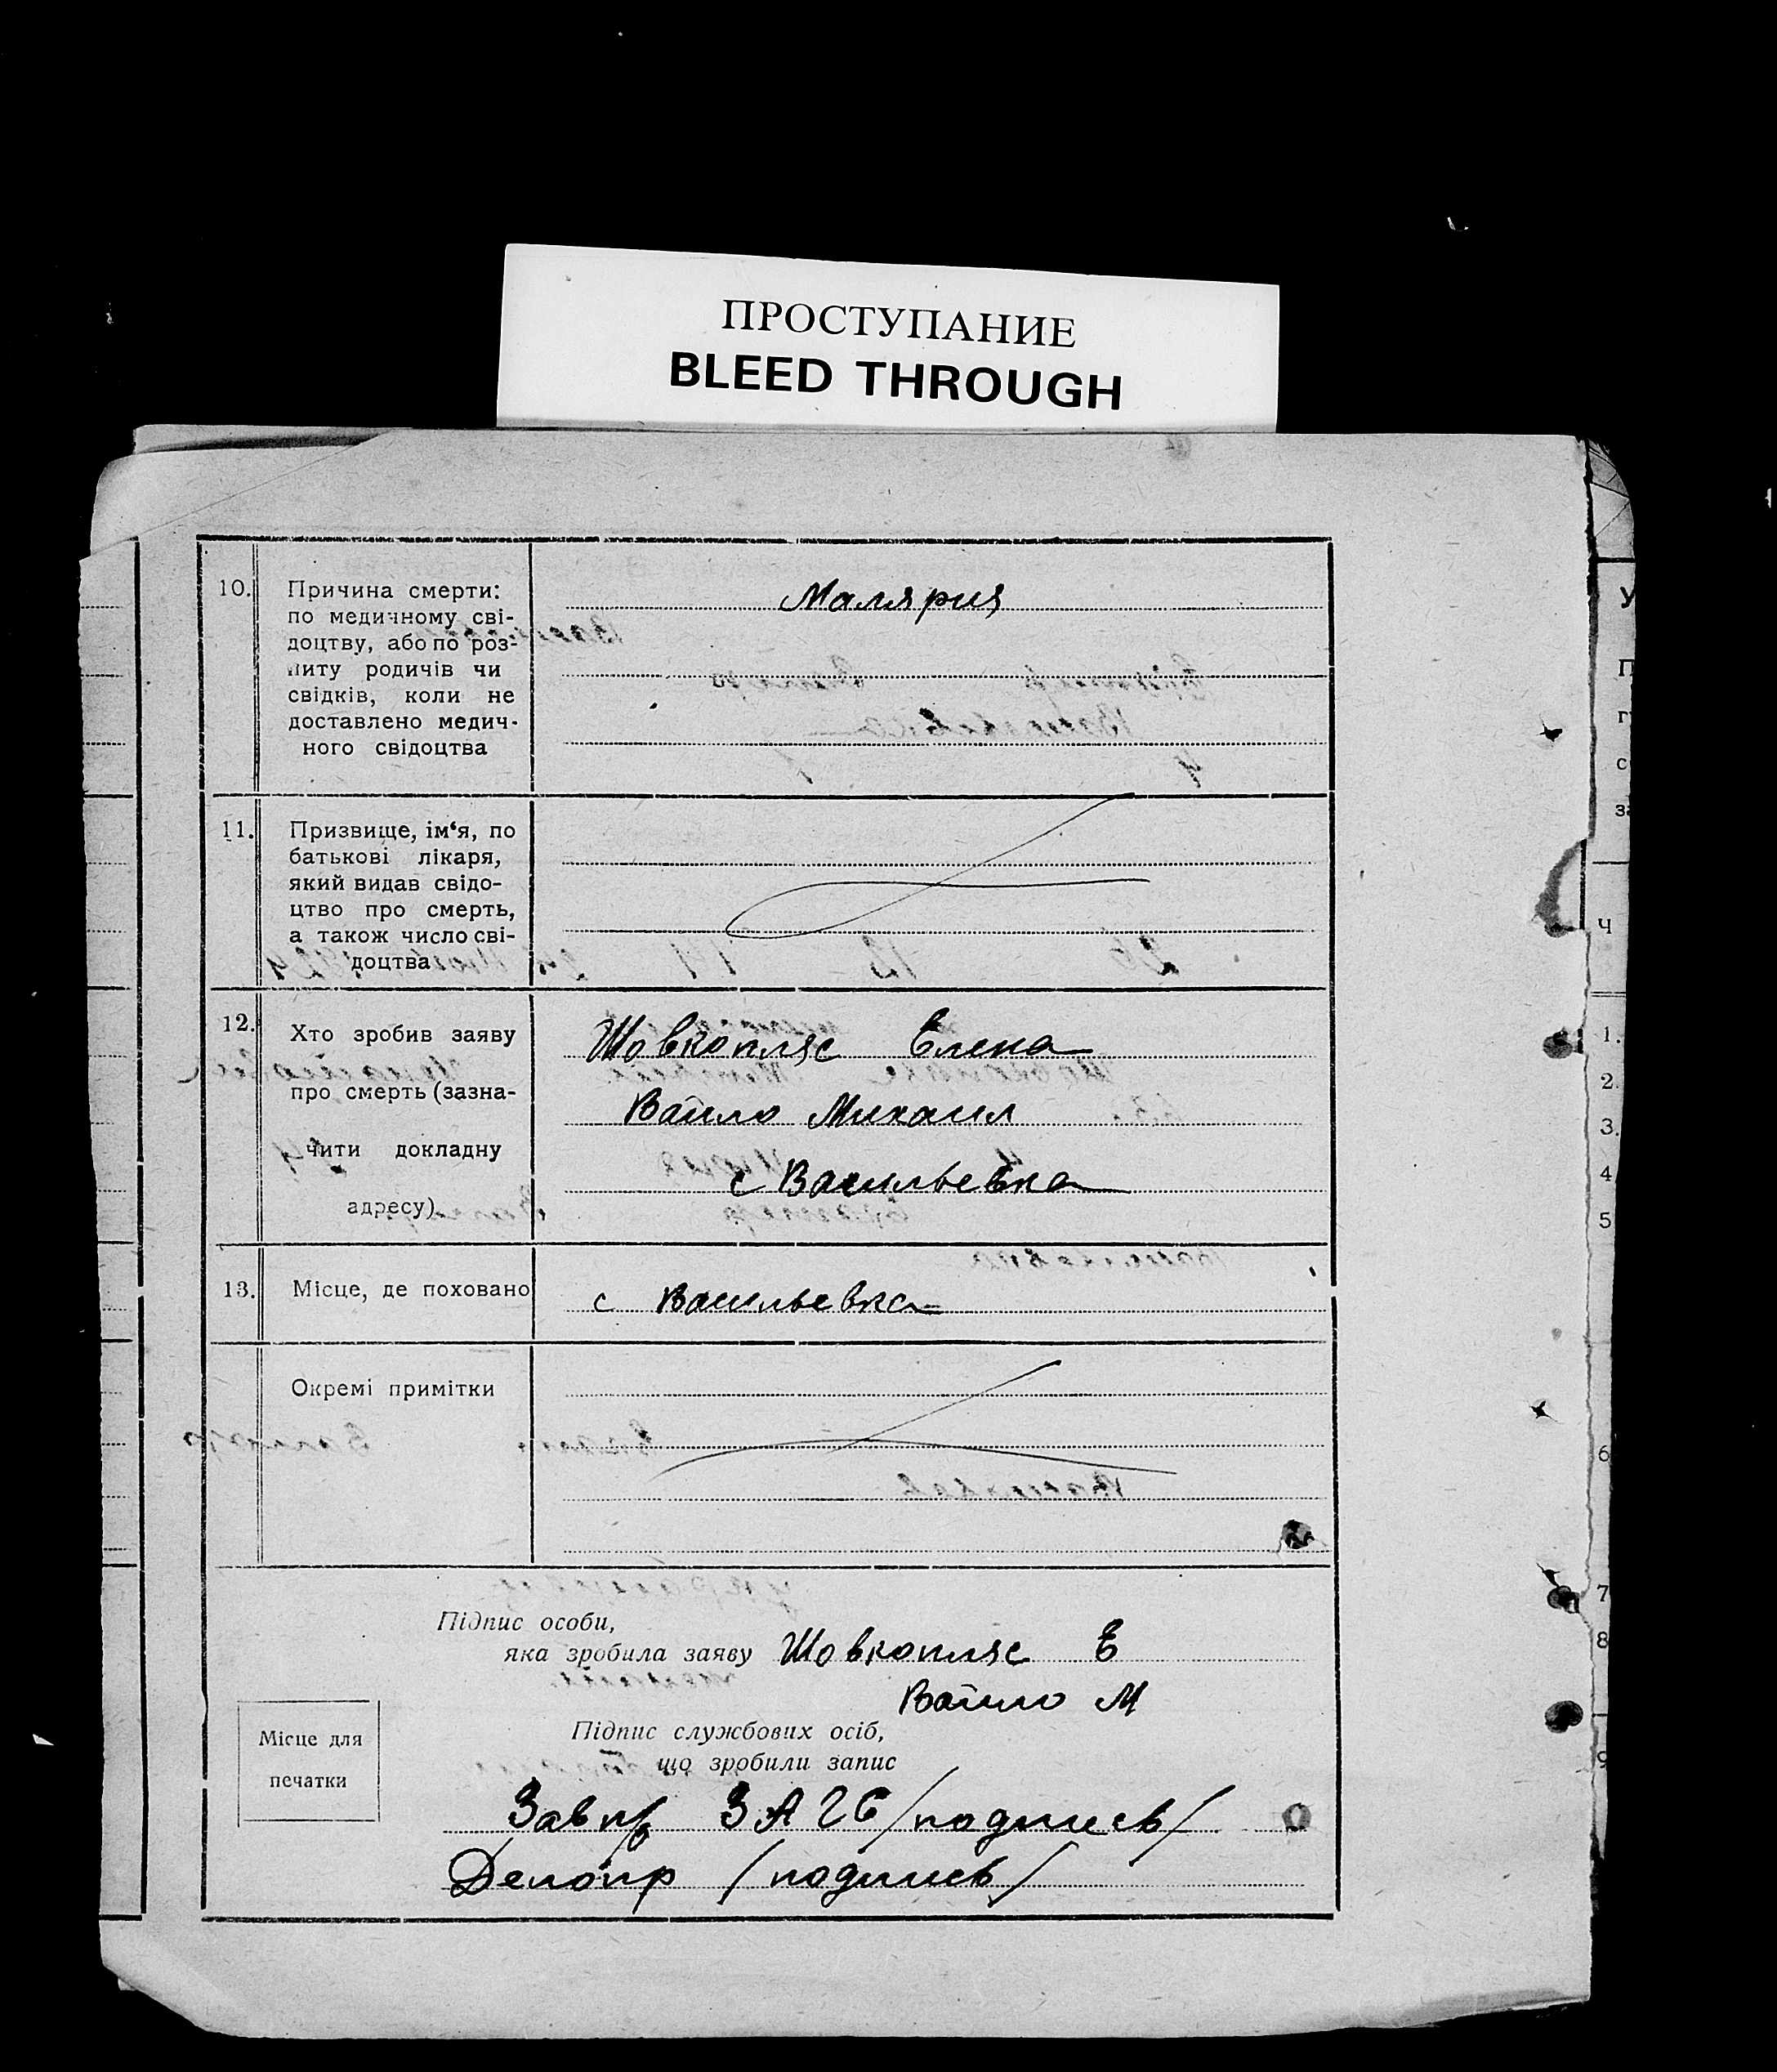 ПРОСТУПАНИЕ
BLEED THROUGH
10.
Причина смерти:
по медичному сві-
доцтву, або по роз-
питу родичів чи
свідків, коли не
доставлено медич-
ного свідоцтва
Малярия
11.
Призвище, ім‘я, по
батькові лікаря,
який видав свідо-
цтво про смерть,
а також число сві-
доцтва
12.
Хто зробив заяву
про смерть (зазна-
чити докладну
адресу)
Шовкопляс Елена
Вайло Михаил
с Васильевка
13.
Місце, де поховано
с Васильевка
Окремі примітки
Підпис особи,
яка зробила заяву Шовкопляс Е
Вайло М
Підпис службових осіб,
що зробили запис
Місце для
печатки
Зав п/б ЗАГС /подпись/
Делопр /подпись/
У
П
г
с
за
Ч
1.
2.
3.
4
5
6
7
8
9